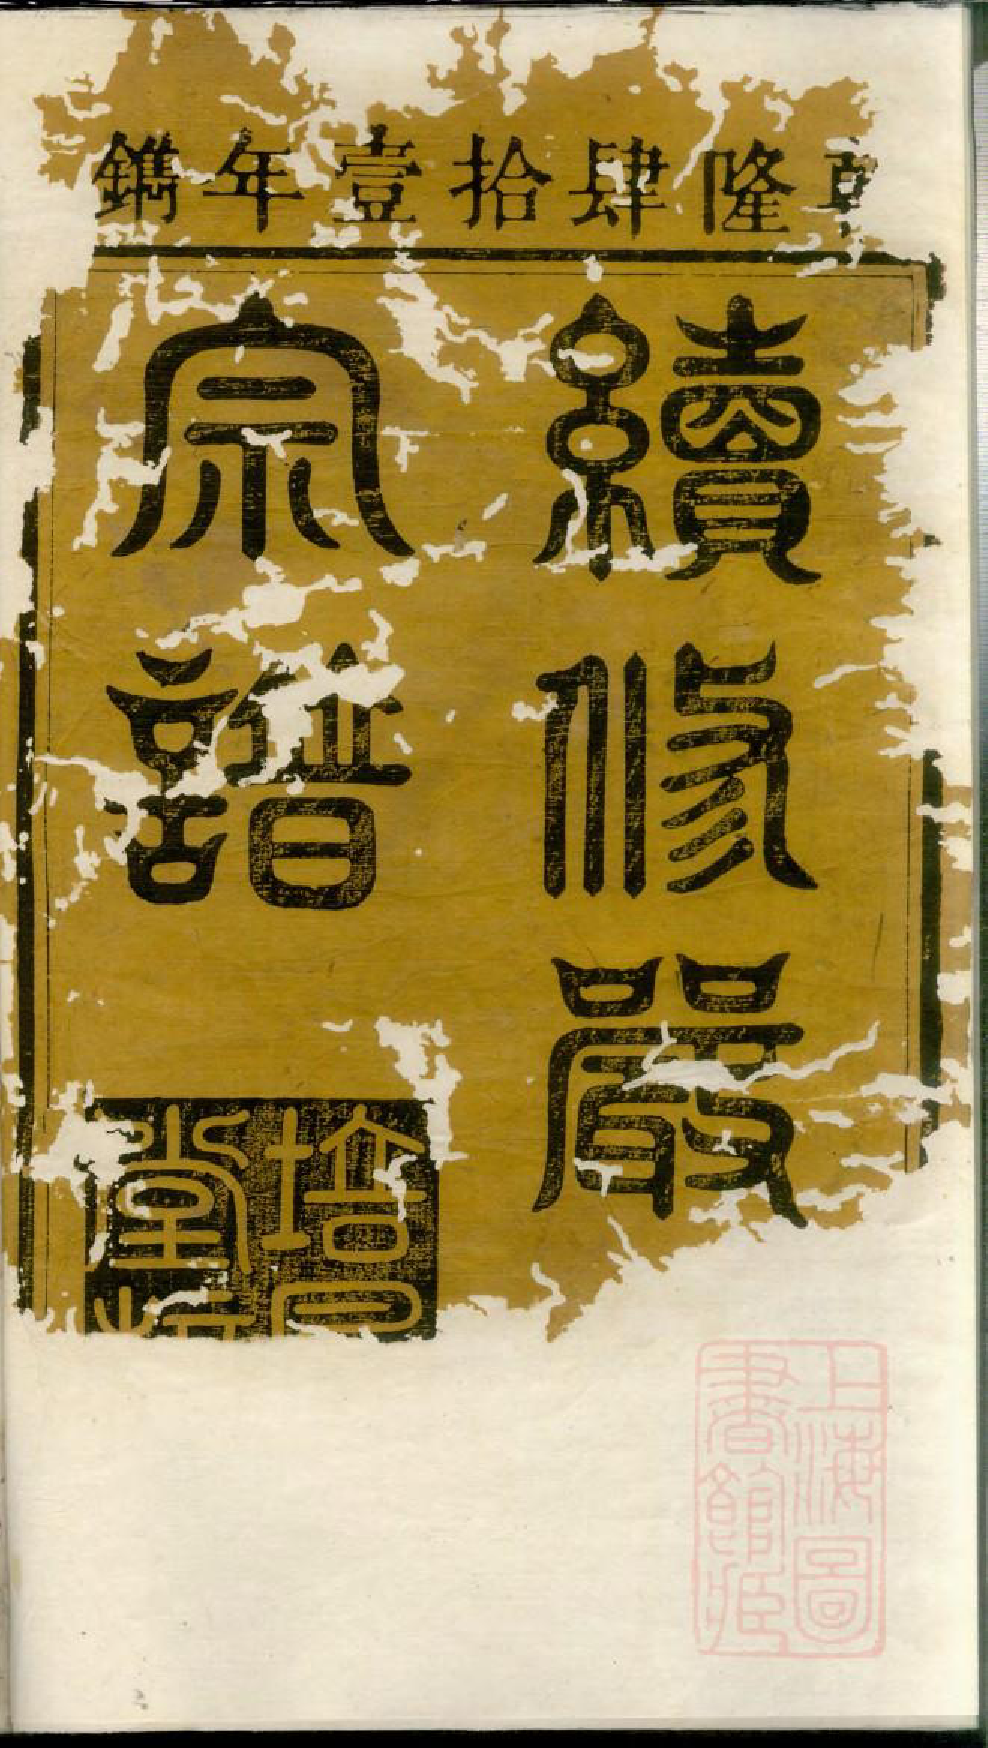 乾隆肆拾壹年鐫
續修嚴
宗譜
培
堂
上海圖
書館藏